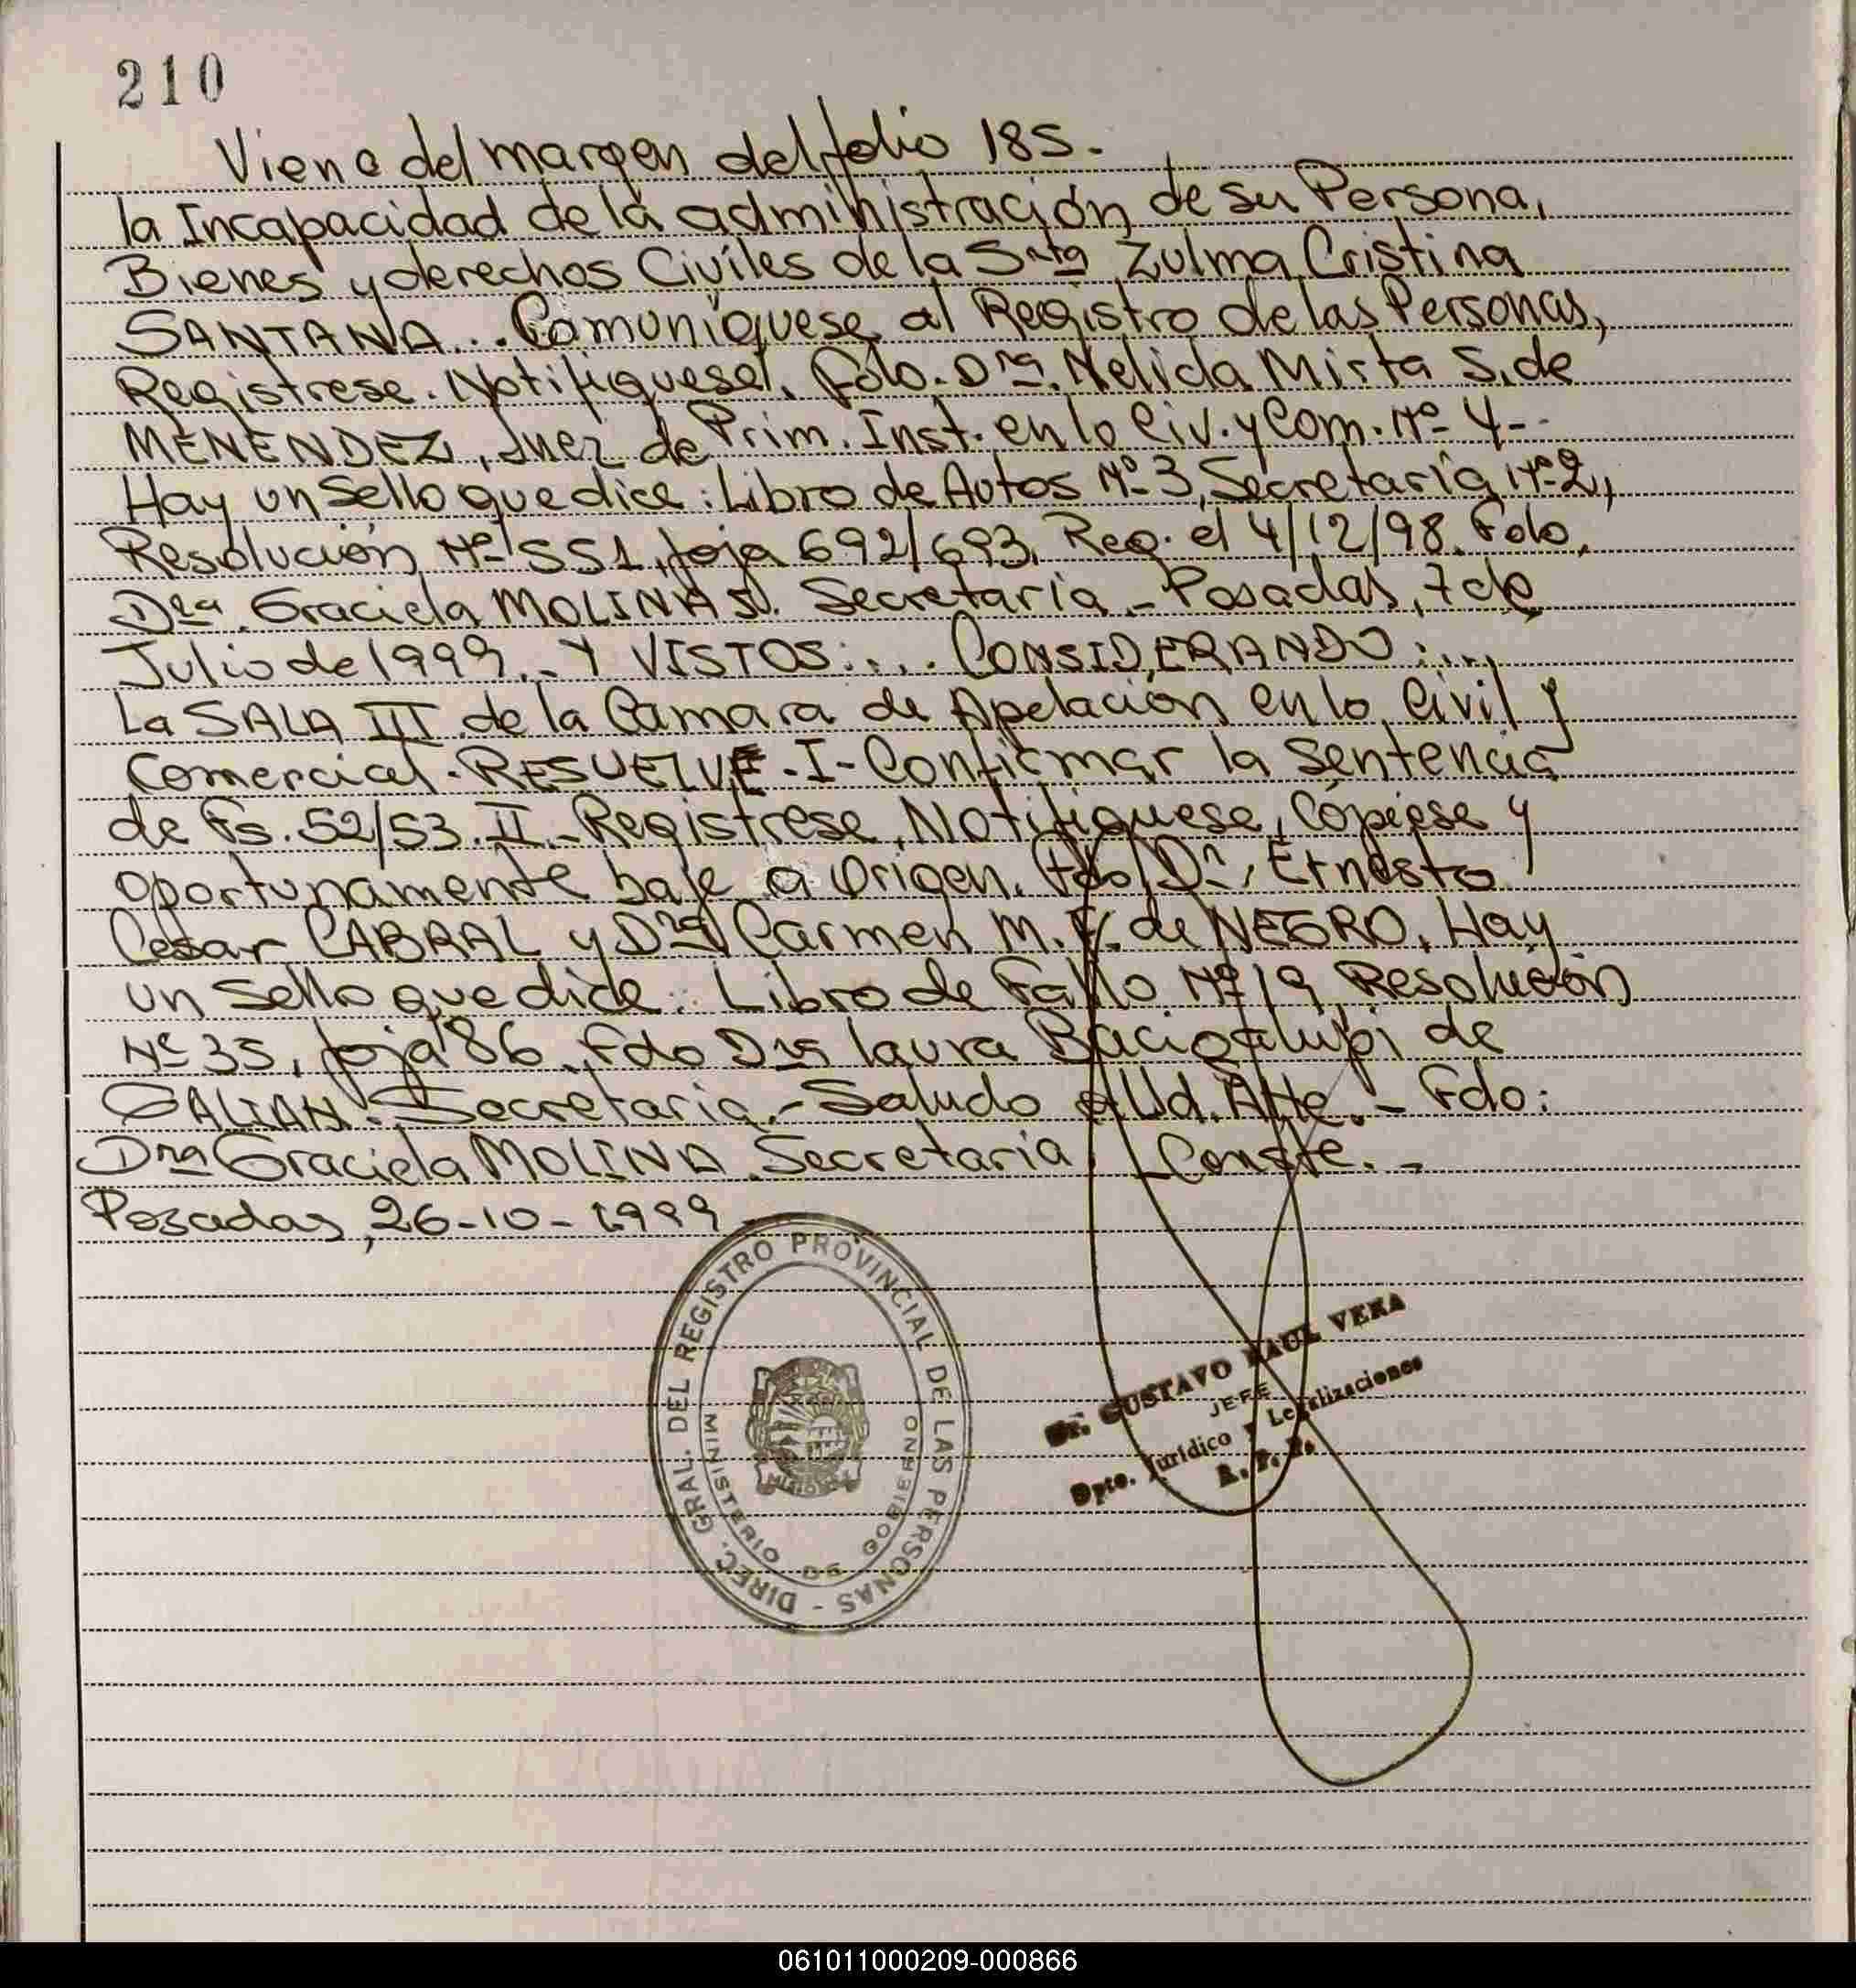 210
Viene del margen del folio 185.
la Incapacidad de la administración de su Persona,
Bienes y derechos Civiles de la Srta Zulma Cristina
SANTANA... Comuníquese al Registro de las Personas,
Registrese. Notifiquese. Fdo. Dra. Nelida Mirta S. de
MENENDEZ, Juez de Prim. Inst. en lo Civ. y Com. Nº 4--
Hay un Sello que dice: Libro de Autos Nº 3, Secretaría Nº 2,
Resolución Nº 551, foja 692/693, Reg. el 4/12/98. Fdo.
Dra. Graciela MOLINAS. Secretaria - Posadas, 7 de
Julio de 1999.- Y VISTOS:... CONSIDERANDO:...
La SALA III de la Camara de Apelación en lo Civil y
Comercial. RESUELVE - I - Confirmar la Sentencia
de Fs. 52/53. II - Registrese, Notifiquese, Cópiese y
oportunamente baje a Origen. Fdo Dr. Ernesto
Cesar CABRAL y Dra Carmen M. F. de NEGRO. Hay
un Sello que dice: Libro de Fallo Nº 19, Resolución
Nº 35, foja 86. Fdo Dra laura Bacigalupi de
GALIAN. Secretaria.- Saludo a Ud. Atte. - Fdo:
Dra Graciela MOLINA Secretaria. Conste. -
Posadas, 26-10-1999
DIREC. GRAL. DEL REGISTRO PROVINCIAL DE LAS PERSONAS -
MINISTERIO DE GOBIERNO
Dr. GUSTAVO RAUL VERA
JEFE
Dpto. Jurídico y Legalizaciones
R. P. P.
061011000209-000866